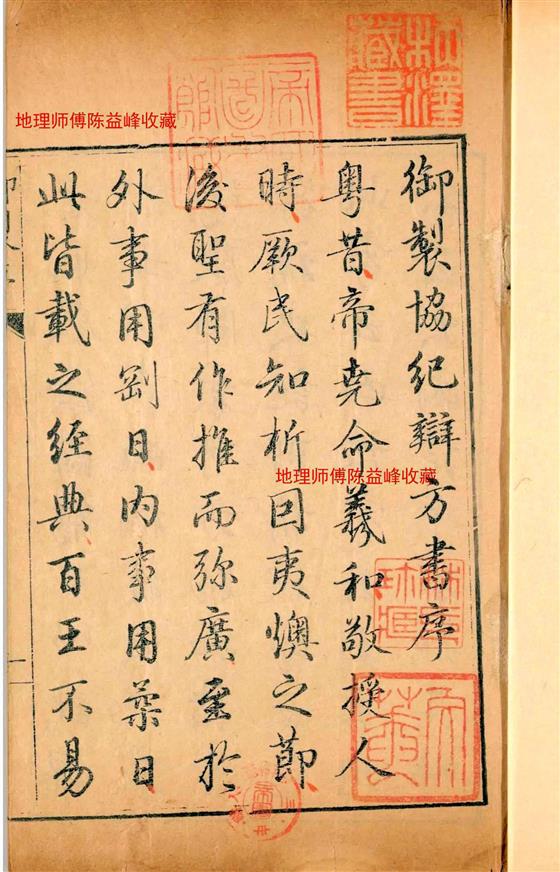 御製協紀辯方書序
粤昔帝堯命羲和敬授人
時厥民知析因夷燠之節
後聖有作推而弥廣至於
外事用剛日内事用柔日
此皆載之經典百王不易
地理师傅陈益峰收藏
地理师傅陈益峰收藏
藏書